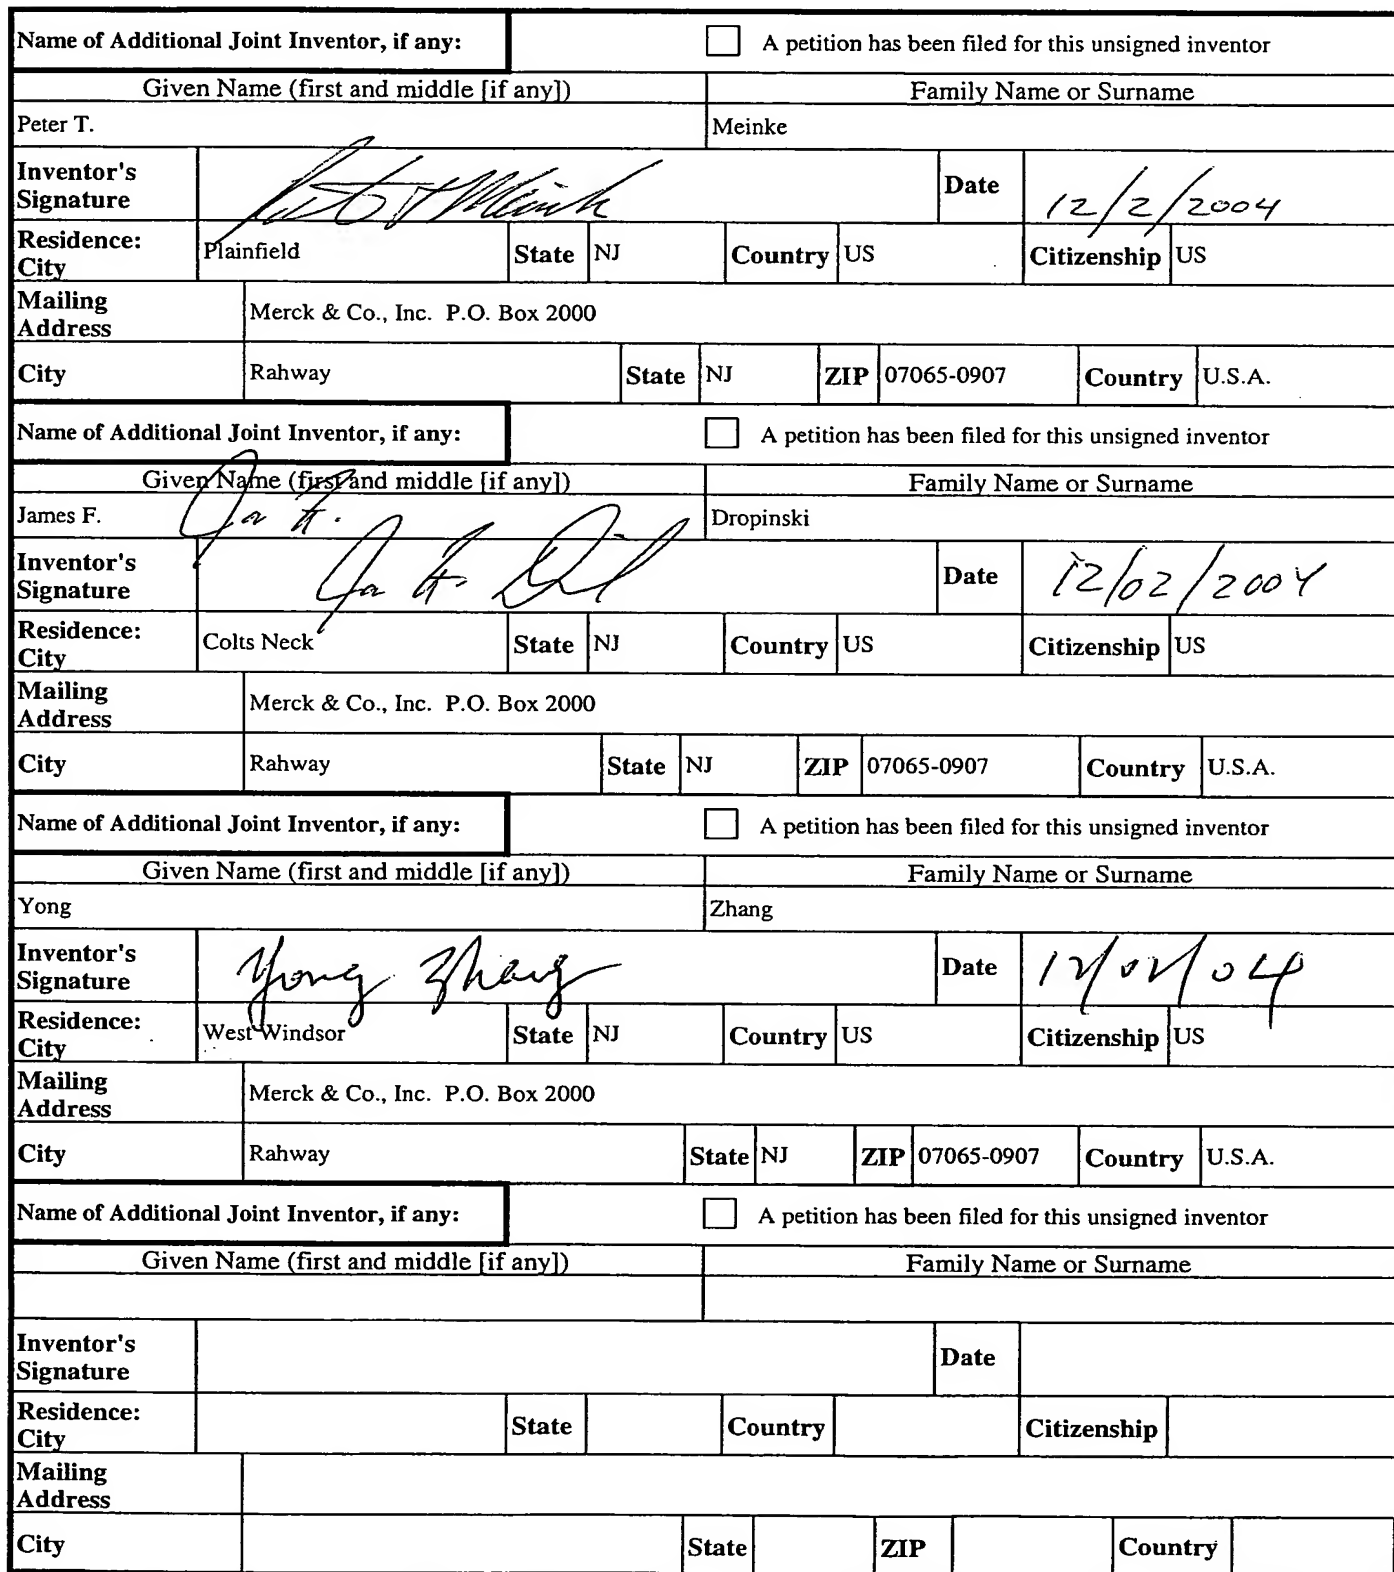 Name of Additional Joint Inventor, if any: A petition has been filed for this unsigned inventor
Given Name (first and middle [if any]) Family Name or Surname
Peter T. Meinke
Inventor's Signature Date 12/2/2004
Residence: City Plainfield State NJ Country US Citizenship US
Mailing Address Merck & Co., Inc. P.O. Box 2000
City Rahway State NJ ZIP 07065-0907 Country U.S.A.
Name of Additional Joint Inventor, if any: A petition has been filed for this unsigned inventor
Given Name (first and middle [if any]) Family Name or Surname
James F. Dropinski
Inventor's Signature Date 12/02/2004
Residence: City Colts Neck State NJ Country US Citizenship US
Mailing Address Merck & Co., Inc. P.O. Box 2000
City Rahway State NJ ZIP 07065-0907 Country U.S.A.
Name of Additional Joint Inventor, if any: A petition has been filed for this unsigned inventor
Given Name (first and middle [if any]) Family Name or Surname
Yong Zhang
Inventor's Signature Yong Zhang Date 12/02/04
Residence: City West Windsor State NJ Country US Citizenship US
Mailing Address Merck & Co., Inc. P.O. Box 2000
City Rahway State NJ ZIP 07065-0907 Country U.S.A.
Name of Additional Joint Inventor, if any: A petition has been filed for this unsigned inventor
Given Name (first and middle [if any]) Family Name or Surname
Inventor's Signature Date
Residence: City State Country Citizenship
Mailing Address
City State ZIP Country